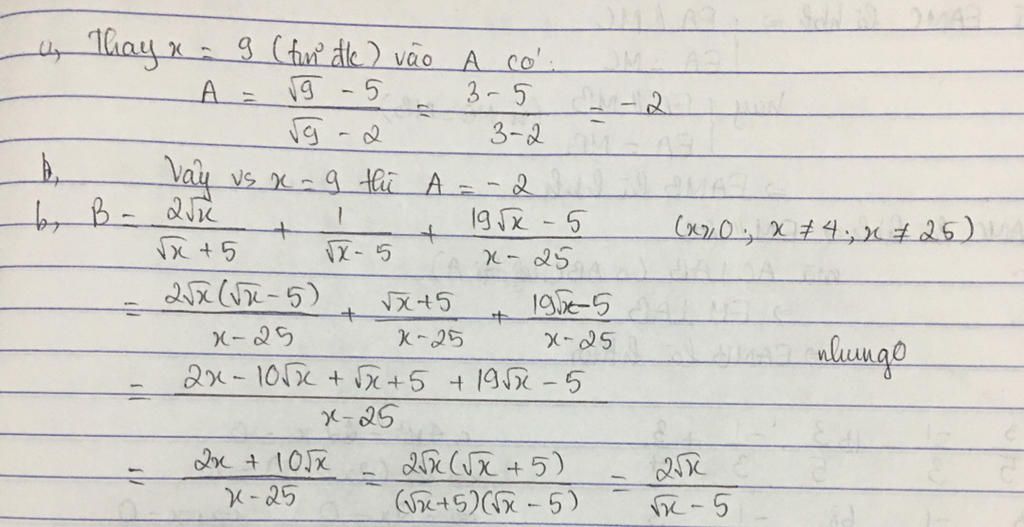 a, Thay x = 9 (tmđk) vào A có:
A = (√9 - 5)/(√9 - 2) = (3 - 5)/(3 - 2) = -2
Vậy vs x = 9 thì A = -2
b, B = 2√x/(√x + 5) + 1/(√x - 5) + (19√x - 5)/(x - 25) (x ≥ 0; x ≠ 4; x ≠ 25)
= 2√x(√x - 5)/(x - 25) + (√x + 5)/(x - 25) + (19√x - 5)/(x - 25)
nhungo
= (2x - 10√x + √x + 5 + 19√x - 5)/(x - 25)
= (2x + 10√x)/(x - 25) = 2√x(√x + 5)/((√x + 5)(√x - 5)) = 2√x/(√x - 5)